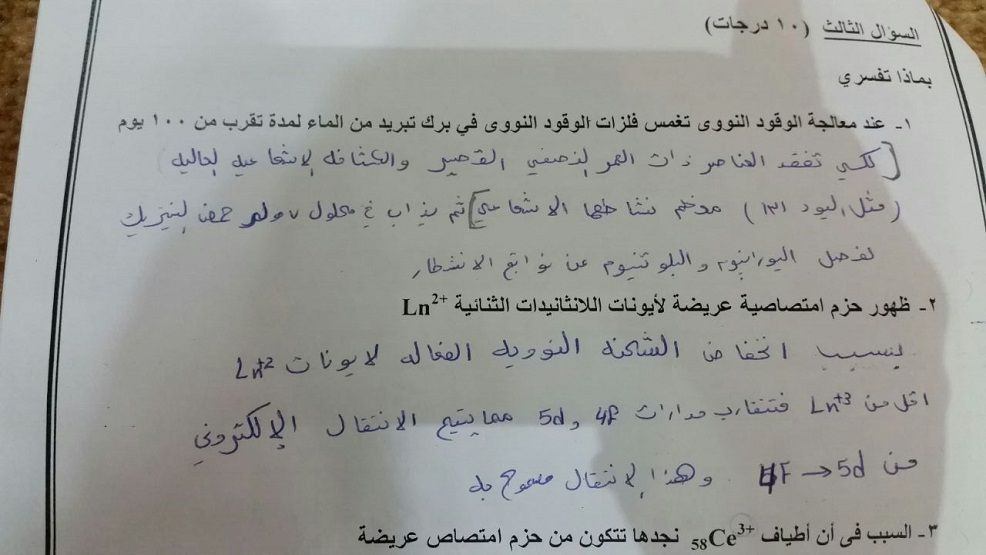 السؤال الثالث (١٠ درجات)
بماذا تفسري
١- عند معالجة الوقود النووى تغمس فلزات الوقود النووى في برك تبريد من الماء لمدة تقرب من ١٠٠ يوم
لكي تفقد العناصر ذات العمر النصفي القصير والكثافه الاشعاعيه العاليه
(مثل اليود ١٣١) معظم نشاطها الاشعاعي] ثم يذاب في محلول ٧ مولر حمض النيتريك
لفصل اليورانيوم والبلوتنيوم عن نواتج الانشطار
٢- ظهور حزم امتصاصية عريضة لأيونات اللانثانيدات الثنائية Ln²⁺
بسبب انخفاض الشحنه النوويه الفعاله لايونات Ln⁺²
اقل من Ln⁺³ فتتقارب مدارات 4f و 5d مما يتيح الانتقال الإلكتروني
من 4F → 5d . وهذا الانتقال مسموح به
٣- السبب فى أن أطياف ₅₈Ce³⁺ نجدها تتكون من حزم امتصاص عريضة